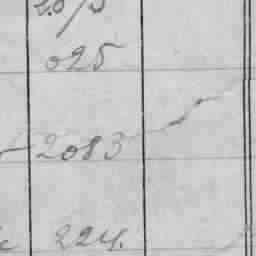 025
2083
224.